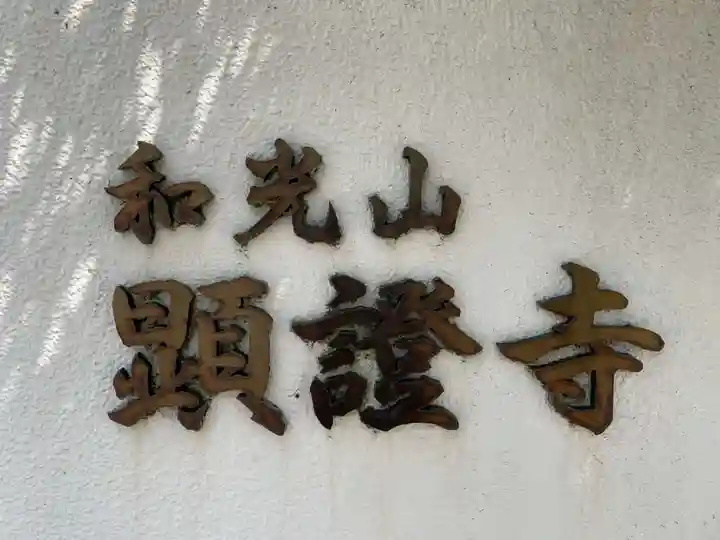 和光山
顕證寺